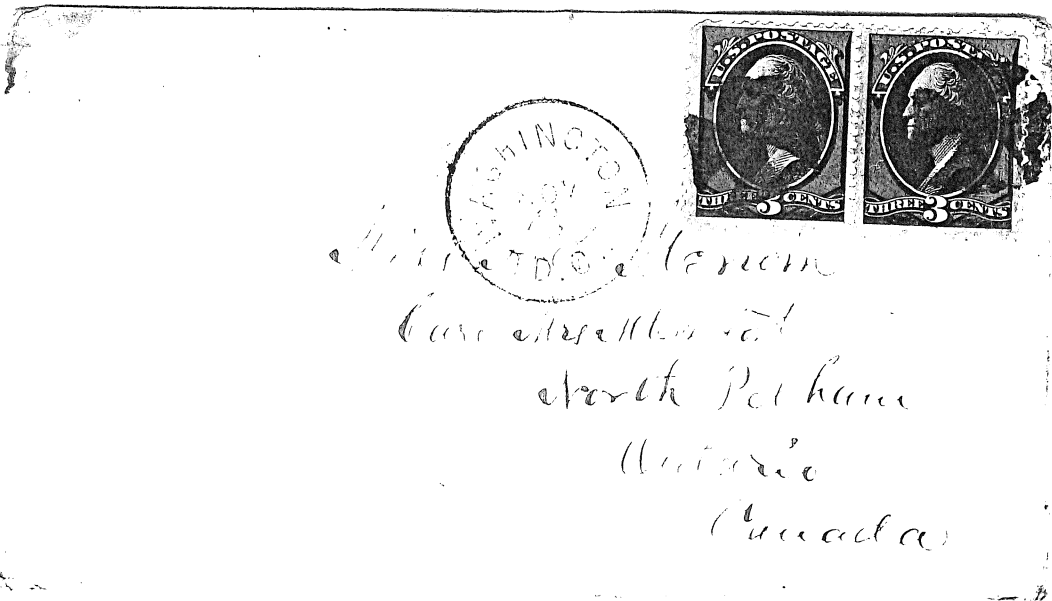 U.S. POSTAGE
THREE 3 CENTS
U.S. POSTAGE
THREE 3 CENTS
WASHINGTON
NOV
D.C.
Miss
Care Mrs
North Pelham
Ontario
Canada